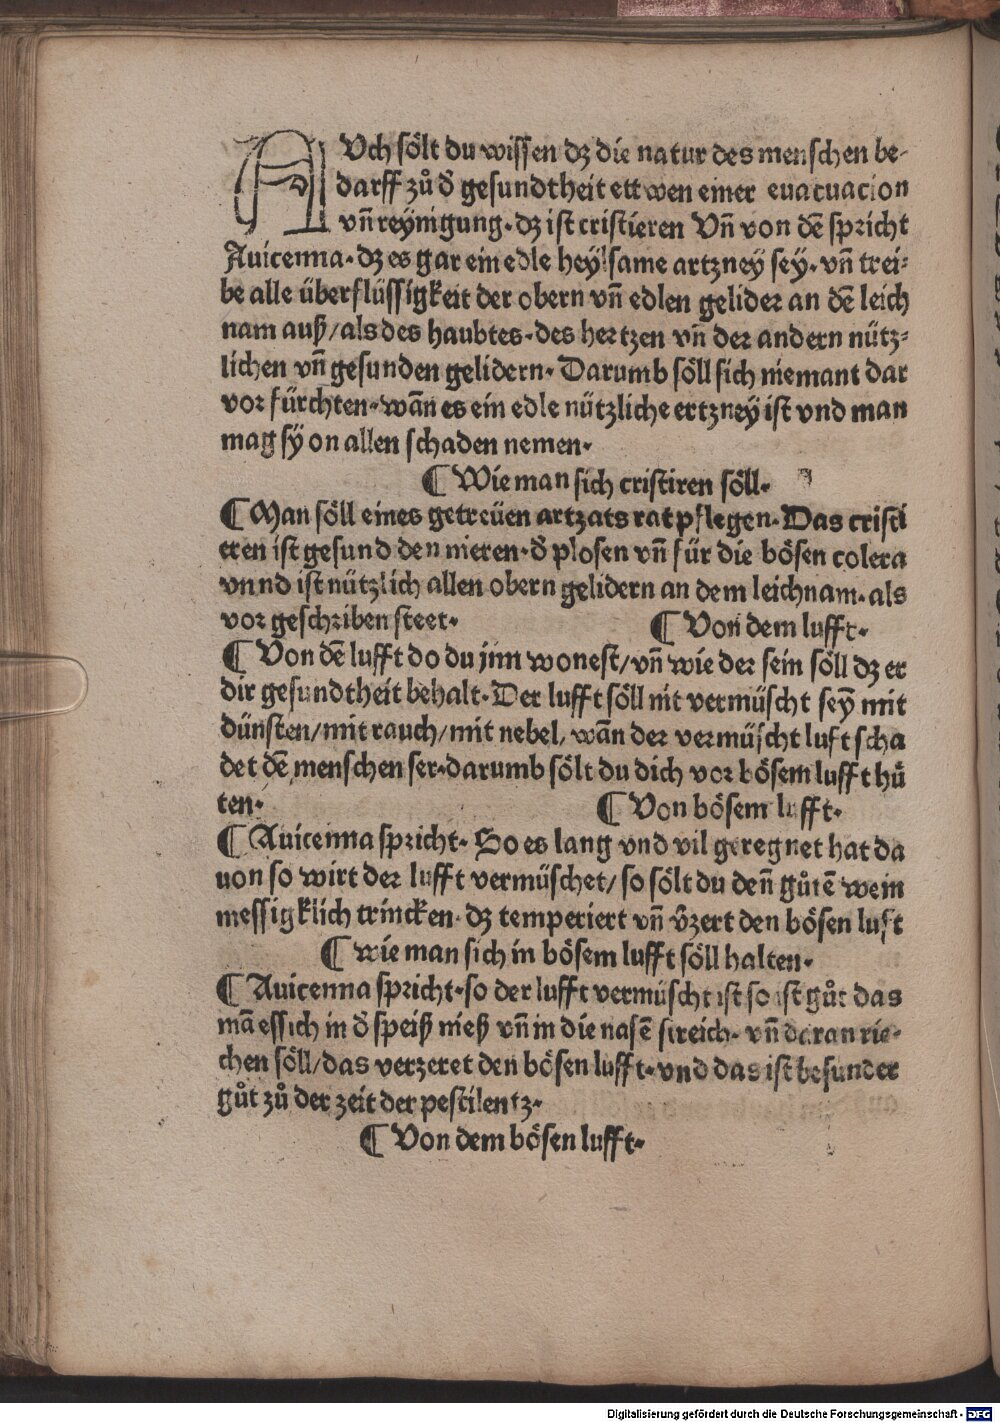 AUch sölt du wissen dz die natur des menschen be-
darff zů d̕ gesundtheit ettwen einer euacuacion
vn̄ reynigung. dz ist cristieren Vn̄ von dē spricht
Auicenna. dz es gar ein edle heylsame artzney sey. vn̄ trei-
be alle überflüssigkeit der obern vn̄ edlen gelider an dē leich
nam auß/als des haubtes. des hertzen vn̄ der andern nütz-
lichen vn̄ gesunden gelidern. Darumb söll sich niemant dar
vor fürchten. wān es ein edle nützliche ertzney ist vnd man
mag sÿ on allen schaden nemen.
¶ Wie man sich cristiren söll.
¶ Man söll eines getreüen artzats rat pflegen. Das cristi
eren ist gesund den nieren. d̕ plosen vn̄ für die bösen colera
vnnd ist nützlich allen obern gelidern an dem leichnam. als
vor geschriben steet. ¶ Von dem lufft.
¶ Von dē lufft do du jnn wonest/vn̄ wie der sein söll dz er
dir gesundtheit behalt. Der lufft söll nit vermüscht seȳ mit
dünsten/mit rauch/mit nebel, wān der vermüscht luft scha
det dē menschen ser. darumb sölt du dich vor bösem lufft hü
ten. ¶ Von bösem lufft.
¶ Auicenna spricht. So es lang vnd vil geregnet hat da
uon so wirt der lufft vermüschet/so sölt du den̄ gůtē wein
messigklich trincken. dz temperiert vn̄ v̄zert den bösen luft
¶ wie man sich in bösem lufft söll halten.
¶ Auicenna spricht. so der lufft vermüscht ist so ist gůt das
mā essich in d̕ speiß nieß vn̄ in die nasē streich. vn̄ daran rie-
chen söll/das verzeret den bösen lufft. vnd das ist besunder
gůt zů der zeit der pestilentz.
¶ Von dem bösen lufft.
Digitalisierung gefördert durch die Deutsche Forschungsgemeinschaft - DFG